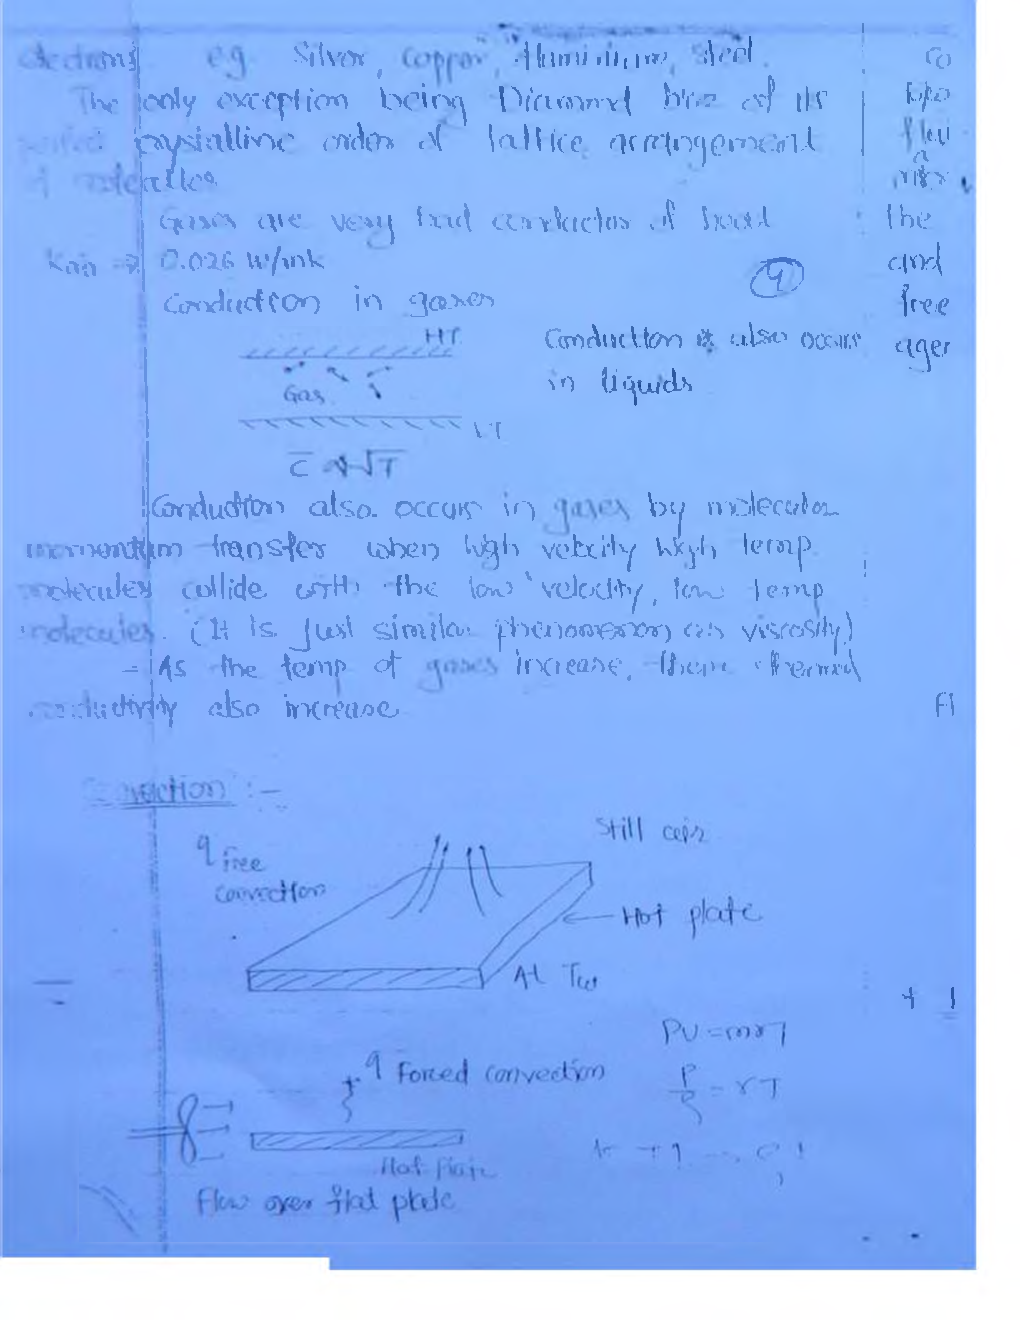 electrons e.g. Silver, Copper, Aluminium, steel.
The only exception being Diamond bcoz of its
crystalline order of lattice arrangement
of molecules
Gases are very bad conductor of heat
Kair → 0.026 W/mk
9
Conduction in gases
HT
Gas
LT
C̅ α √T
Conduction is also occurs
in liquids
Conduction also occurs in gases by molecular
momentum transfer when high velocity high temp
molecules collide with the low velocity, low temp
molecules. (It is just similar phenomenon as viscosity)
- As the temp of gases increase, their thermal
conductivity also increase
Convection :-
q free
convection
Still air
Hot plate
At Tw
PV = mrT
P/ρ = rT
q Forced convection
Hot plate
Flow over flat plate
co
flui
the
and
free
ager
Fl